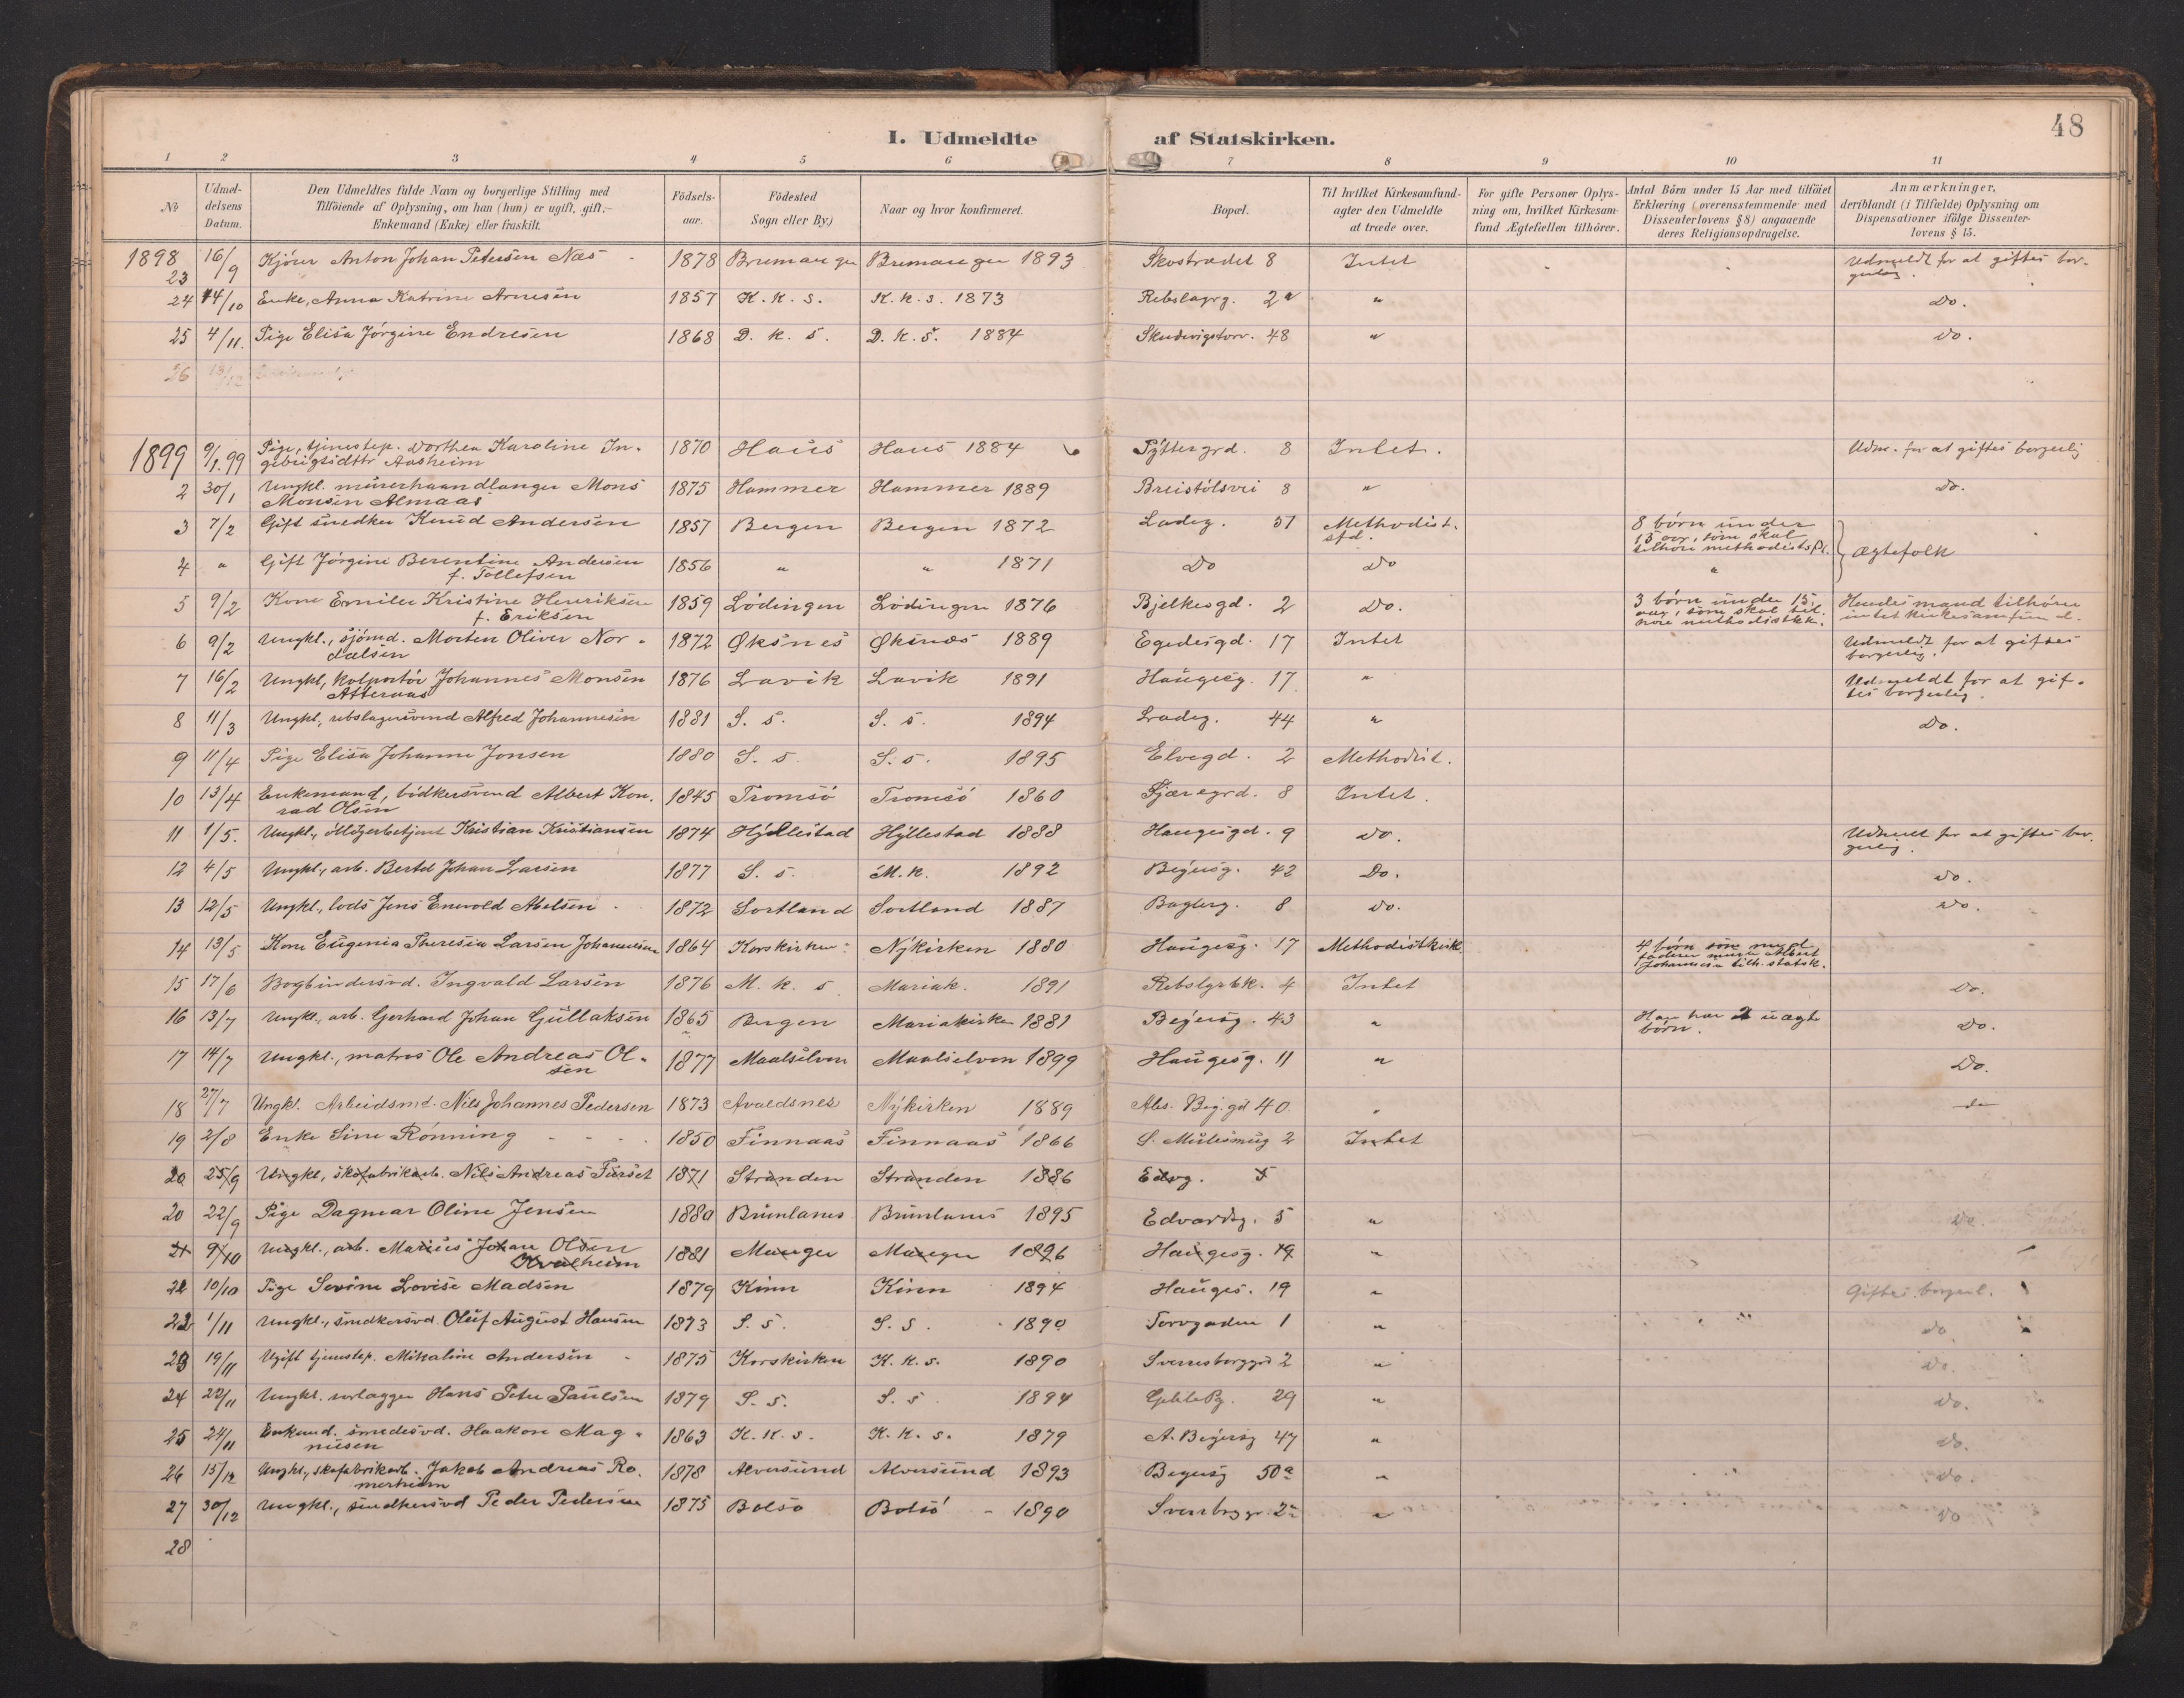 48
I. Udmeldte af Statskirken.
1 2 3 4 5 6 7 8 9 10 11
№ Udmeldelsens Datum. Den Udmeldtes fulde Navn og borgerlige Stilling med Tilföiende af Oplysning, om han (hun) er ugift, gift, Enkemand (Enke) eller fraskilt. Födselsaar. Födested Sogn eller By.) Naar og hvor konfirmeret. Bopæl. Til hvilket Kirkesamfund agter den Udmeldte at træde over. For gifte Personer Oplysning om, hvilket Kirkesamfund Ægtefællen tilhörer. Antal Börn under 15 Aar med tilföiet Erklæring (overensstemmende med Dissenterlovens § 8) angaaende deres Religionsopdragelse. Anmærkninger, deriblandt (i Tilfælde) Oplysning om Dispensationer ifölge Dissenterlovens § 15.
1898 23 16/9 Kjörer Anton Johan Petersen Næs 1878 Bremanger Bremanger 1893 Skostrædet 8 Intet Udmeldt for at giftes borgerlig.
24 14/10 Enke, Anna Katrine Arnesen 1857 K. k. s. K. k. s. 1873 Rebslagrg. 2a " Do.
25 4/11. Pige Elisa Jörgine Endresen 1868 D. k. s. D. k. s. 1884 Skudevigstorv. 48 " do.
26 13/12
1899 9/1.99 Pige, tjenestep. Dorthea Karoline Ingebrigtsdttr Aasheim 1870 Haus Haus 1884 8 Intet. Udm. for at giftes borgerlig
2 30/1 Ungkl. murerhaandlanger Mons Monsen Almaas 1875 Hammer Hammer 1889 Breistölsvei 8 " do.
3 7/2 Gift snedker Knud Andersen 1857 Bergen Bergen 1872 Ladeg. 51 Methodist. sfd. 8 börn under 15 aar, som skal tilhöre methodistsf. Ægtefolk
4 " Gift Jörgine Berentine Andersen f. Tollefsen 1856 " " 1871 Do Do "
5 9/2 Kone Emilie Kristine Henriksen f. Eriksen 1859 Lödingen Lödingen 1876 Bjelkesgd. 2 Do. 3 börn under 15 aar, som skal tilhöre methodistkk. Hendes mand tilhörer intet kirkesamfund.
6 9/2 Ungkl., sjömd. Morten Oliver Nordalsen 1872 Øksnes Øksnes 1889 Egedesgd. 17 Intet Udmeldt for at giftes borgerlig.
7 16/2 Ungkl, kolportör Johannes Monsen Atteraas 1876 Lavik Lavik 1891 Haugesg. 17 " Udmeldt for at giftes borgerlig.
8 11/3 Ungkl, rebslagersvend Alfred Johannesen 1881 S. s. S. s. 1894 Ladeg. 44 " Do.
9 11/4 Pige Elisa Johanne Jonsen 1880 S. s. S. s. 1895 Elvegd. 2 Methodist.
10 13/4 Enkemand, bödkersvend Albert Konrad Olsen 1845 Tromsö Tromsö 1860 Fjæregrd. 8 Intet.
11 1/5. Ungkl., Kristian Kristiansen 1874 Hyllestad Hyllestad 1888 Haugesgd. 9 do. Udmeldt for at giftes borgerlig.
12 4/5 Ungkl., arb. Bertel Johan Larsen 1877 S. s. M. k. 1892 Beyersg. 42 Do. do.
13 12/5 Ungkl., lods Jens Enevold Abelsen 1872 Sortland Sortland 1887 Baglerg. 8 do. do.
14 13/5 Kone Eugenia Theresia Larsen Johannesen 1864 Korskirken Nykirken 1880 Haugesg. 17 Methodistkirk. 4 börn som med faderen Albert Johannesen tilh. statsk.
15 17/6 Bogbindersvd. Ingvald Larsen 1876 M. k. s. Mariak. 1891 4 Intet do.
16 13/7 Ungkl., arb. Gerhard Johan Gullaksen 1865 Bergen Mariakirken 1881 Beyersg. 43 " Han har 2 uægte börn. Do.
17 14/7 Ungkl., matros Ole Andreas Olsen 1877 Maalselven Maalselven 1899 Haugesg. 11 " Do.
18 27/7 Ungkl. Arbeidsmd. Nils Johannes Pedersen 1873 Avaldsnes Nykirken 1889 40. " do
19 2/8 Enke Sine Rönning 1850 Finnaas Finnaas 1866 S. Mulesmug 2 Intet
20 25/9 Ungkl, skofabrikarb. Nils Andreas Furset 1871 Stranden Stranden 1886 Edvg. 5
20 22/9 Pige Dagmar Oline Jensen 1880 Brunlanes Brunlanes 1895 Edvardsg. 5 " Do.
21 9/10 Ungkl., arb. Marius Johan Olsen Kvalheim 1881 Manger Manger 1896 Haugesg. 19 "
21 10/10 Pige Severine Lovise Madsen 1879 Kinn Kinn 1894 Hauges. 19 " Giftes borgerl.
22 1/11 Ungkl., snedkersvd. Oluf August Hansen 1873 S. s. S. s. 1890 Torvgaden 1 " do
23 19/11 Ugift tjenestep. Mikaline Andersen 1875 Korskirken K. k. s. 1890 Sverresborggd 2 " Do.
24 22/11 Ungkl. Hans Peter Paulsen 1879 S. s. S. s. 1894 29 " Do.
25 24/11 Enkemd. smedesvd. Haakon Magnusen 1863 K. K. s. K. k. s. 1879 A. Beyersg 47 " do.
26 15/12 Ungkl., skofabrikarb. Jakob Andreas Romerheim 1878 Alversund Alversund 1893 Beyersg 50a " Do.
27 30/12 Ungkl., snedkersvd Peder Pedersen 1875 Bolsö Bolsö 1890 2a " Do
28